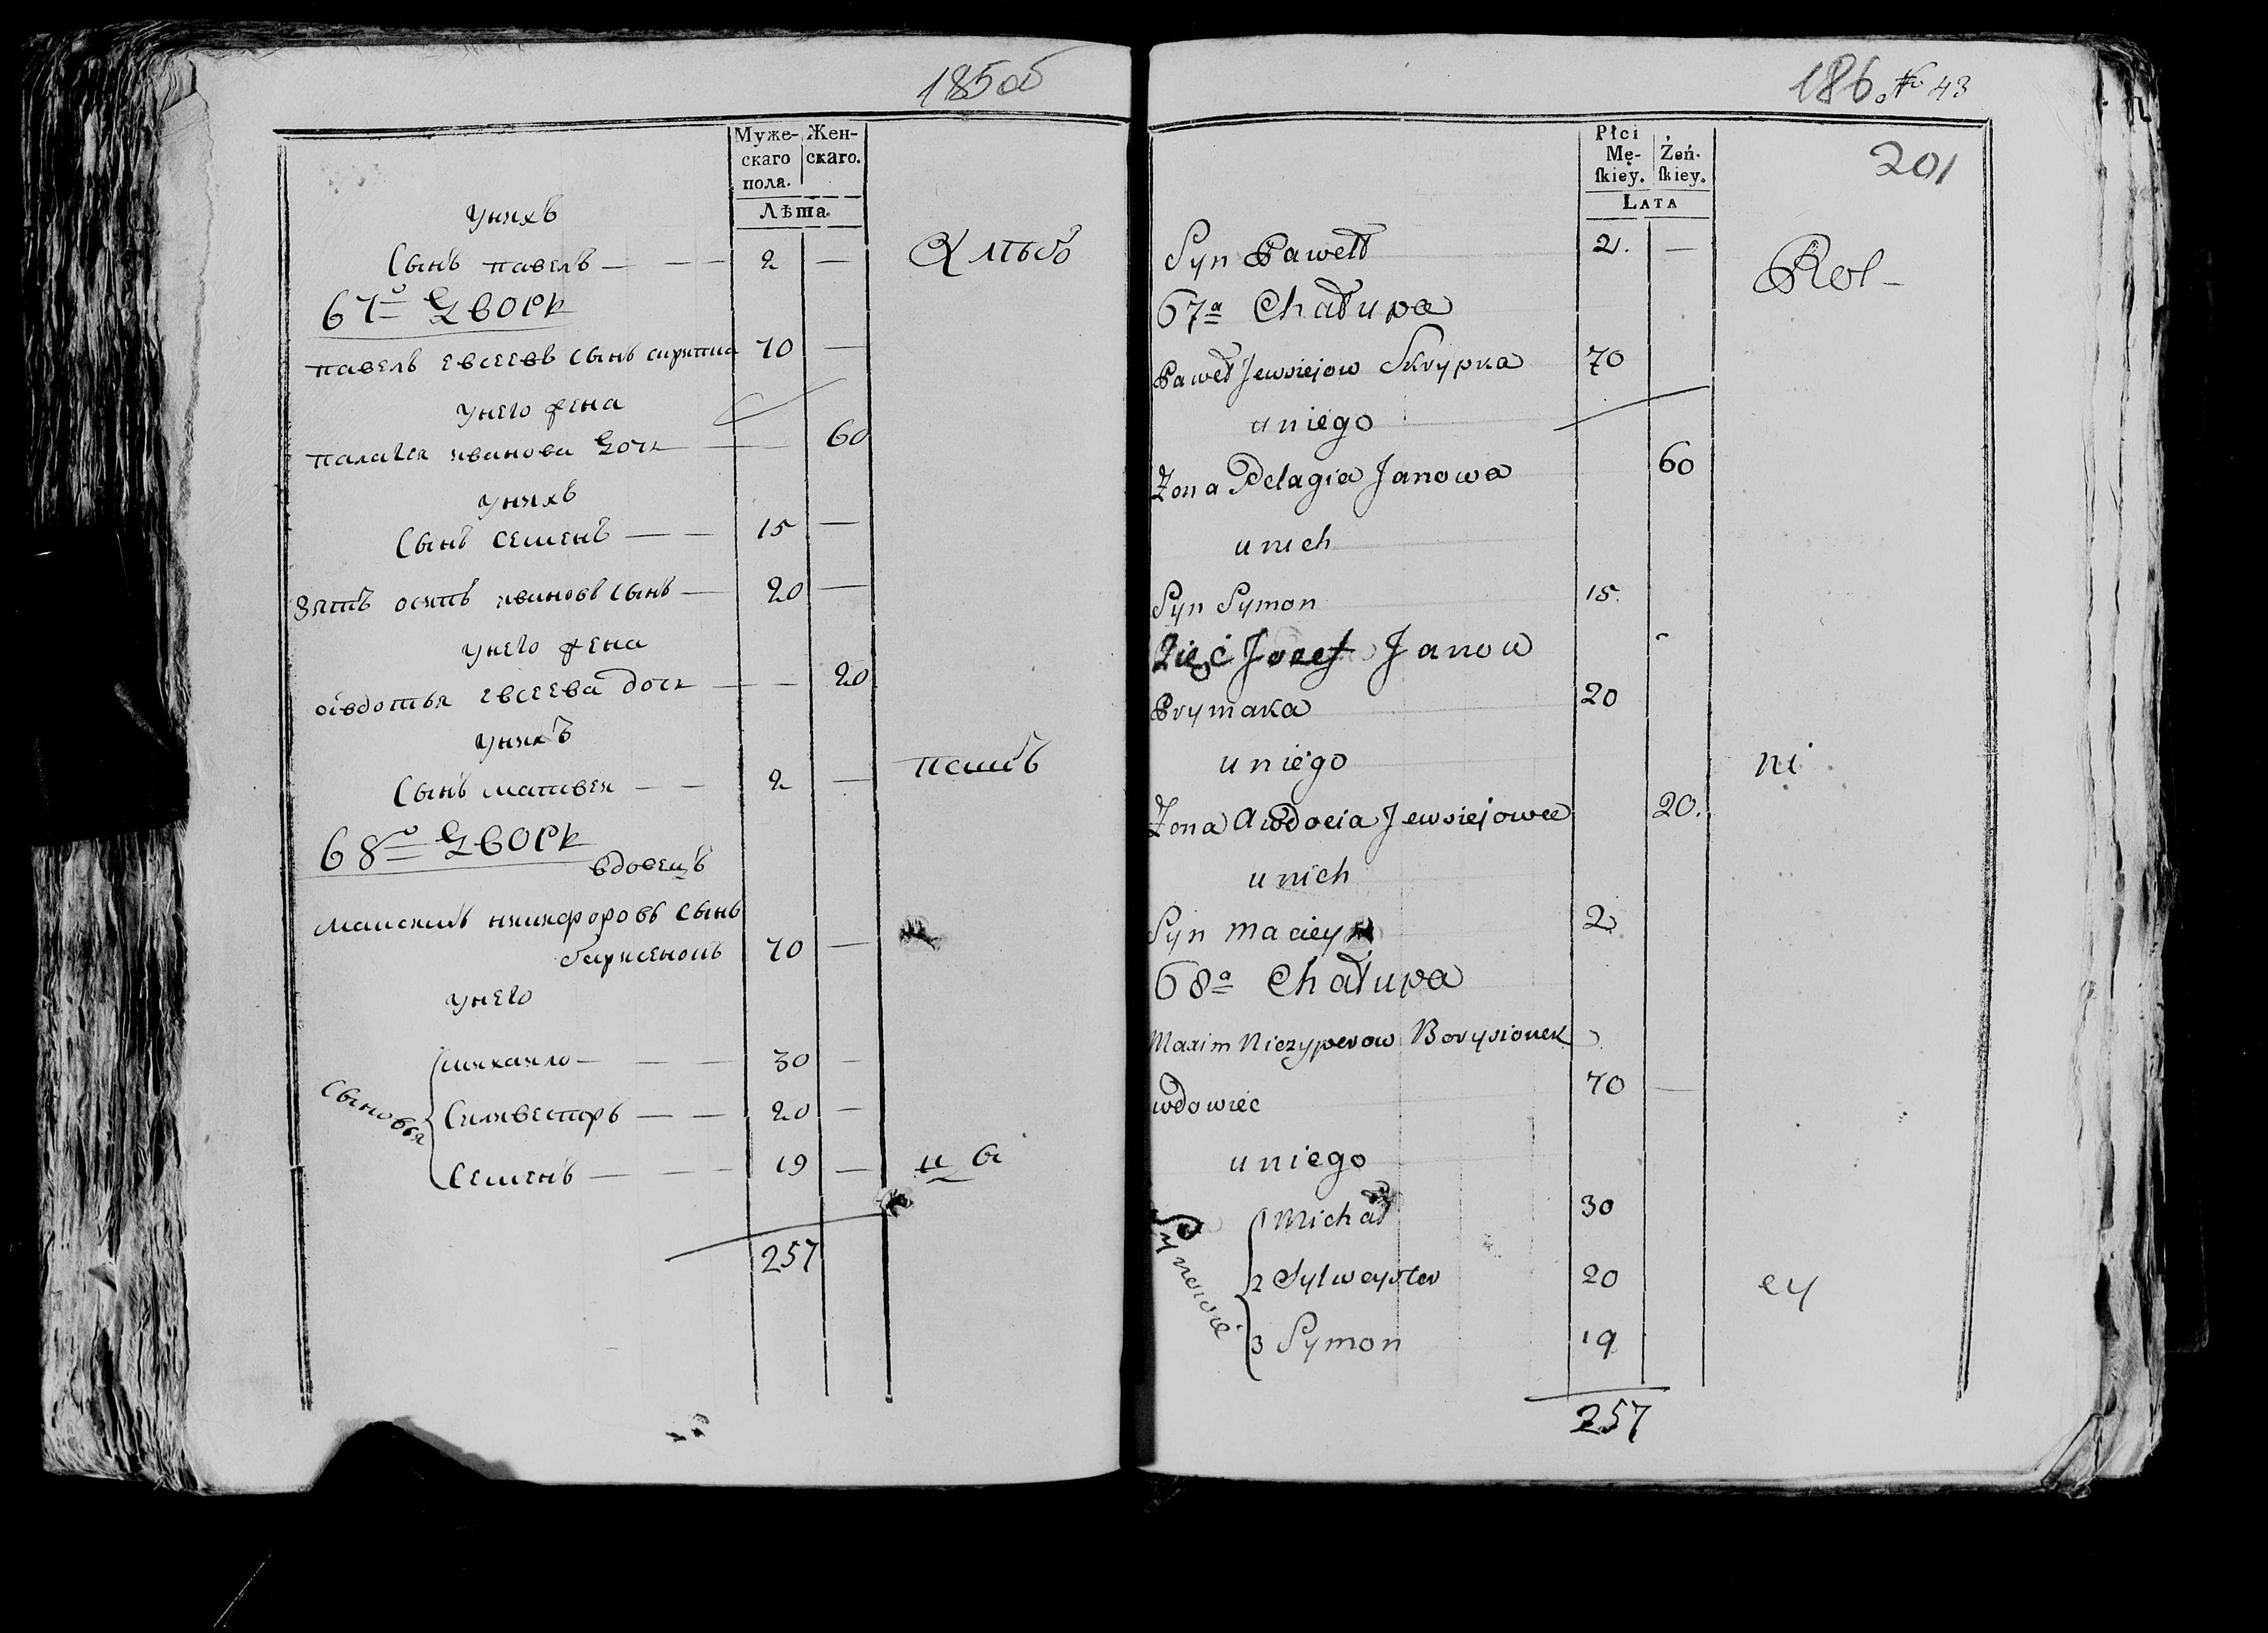 185 об
Муже-
скаго
пола.
Жен-
скаго.
Лѣта.
унихъ
Сынъ павелъ — — — 2 —
Хлѣбо
67й Дворъ
павелъ Евсеевъ сынъ скрипка 70 —
унего жена
палагея иванова дочь — 60
унихъ
Сынъ семенъ — — 15 —
Зять осипъ ивановъ сынъ — 20 —
унего жена
овдотья Евсеева дочь — — 20
унихъ
Сынъ матвей — — 2 —
пашъ
68й Дворъ
вдовецъ
максимъ никифоровъ сынъ
борисенокъ 70 —
унего
Сыновья
михайло — — — 30 —
Силивестръ — — 20 —
Семенъ — — — 19 —
цы
257
186 № 43
201
Płci
Mę-
skiey.
Żeń-
skiey.
LATA
Syn Paweł 2. —
Rol-
67a Chałupa
Paweł Jewsiejow Skrypka 70
u niego
Żona Pelagia Janowa 60
u nich
Syn Symon 15.
Zięć Jozef Janow
Prymaka 20
u niego
ni
Żona Awdocia Jewsiejowa 20.
u nich
Syn Maciey 2
68a Chałupa
Maxim Niczyperow Borysionek
wdowiec 70 —
u niego
Synowie
1 Michał 30
2 Sylweyster 20
ey
3 Symon 19
257